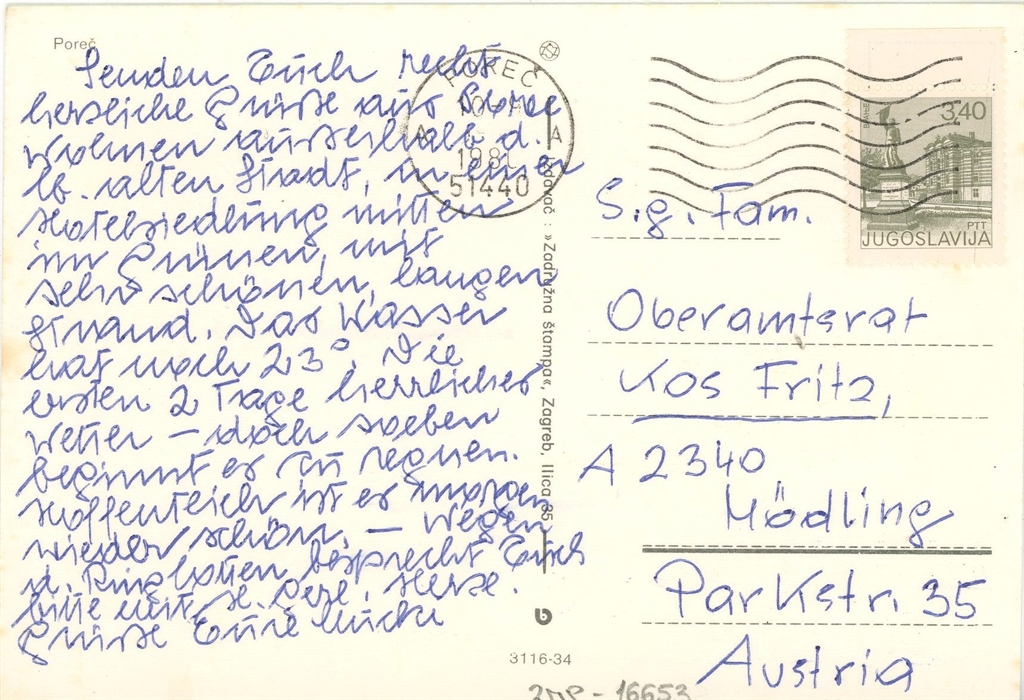 Poreč
Senden Euch recht
herzliche Grüße aus Porec
Wohnen ausserhalb d.
lb. alten Stadt, in einer
Hotelsiedlung mitten
im Grünen, mit
sehr schönen, langen
Strand. Das Wasser
hat noch 23°. Die
ersten 2 Tage herrliches
Wetter – doch soeben
beginnt es zu regnen.
Hoffentlich ist es morgen
wieder schön. – Wegen
d. Ringlotten besprecht Euch
bitte mit H. Herz.
Grüße Eure
POREČ
10
1981
51440
A A
Izdavač: »Zadružna štampa«, Zagreb, Ilica 35
3,40
PTT
JUGOSLAVIJA
S.g. Fam.
Oberamtsrat
Kos Fritz,
A 2340
Mödling
Parkstr. 35
Austria
3116-34
16653